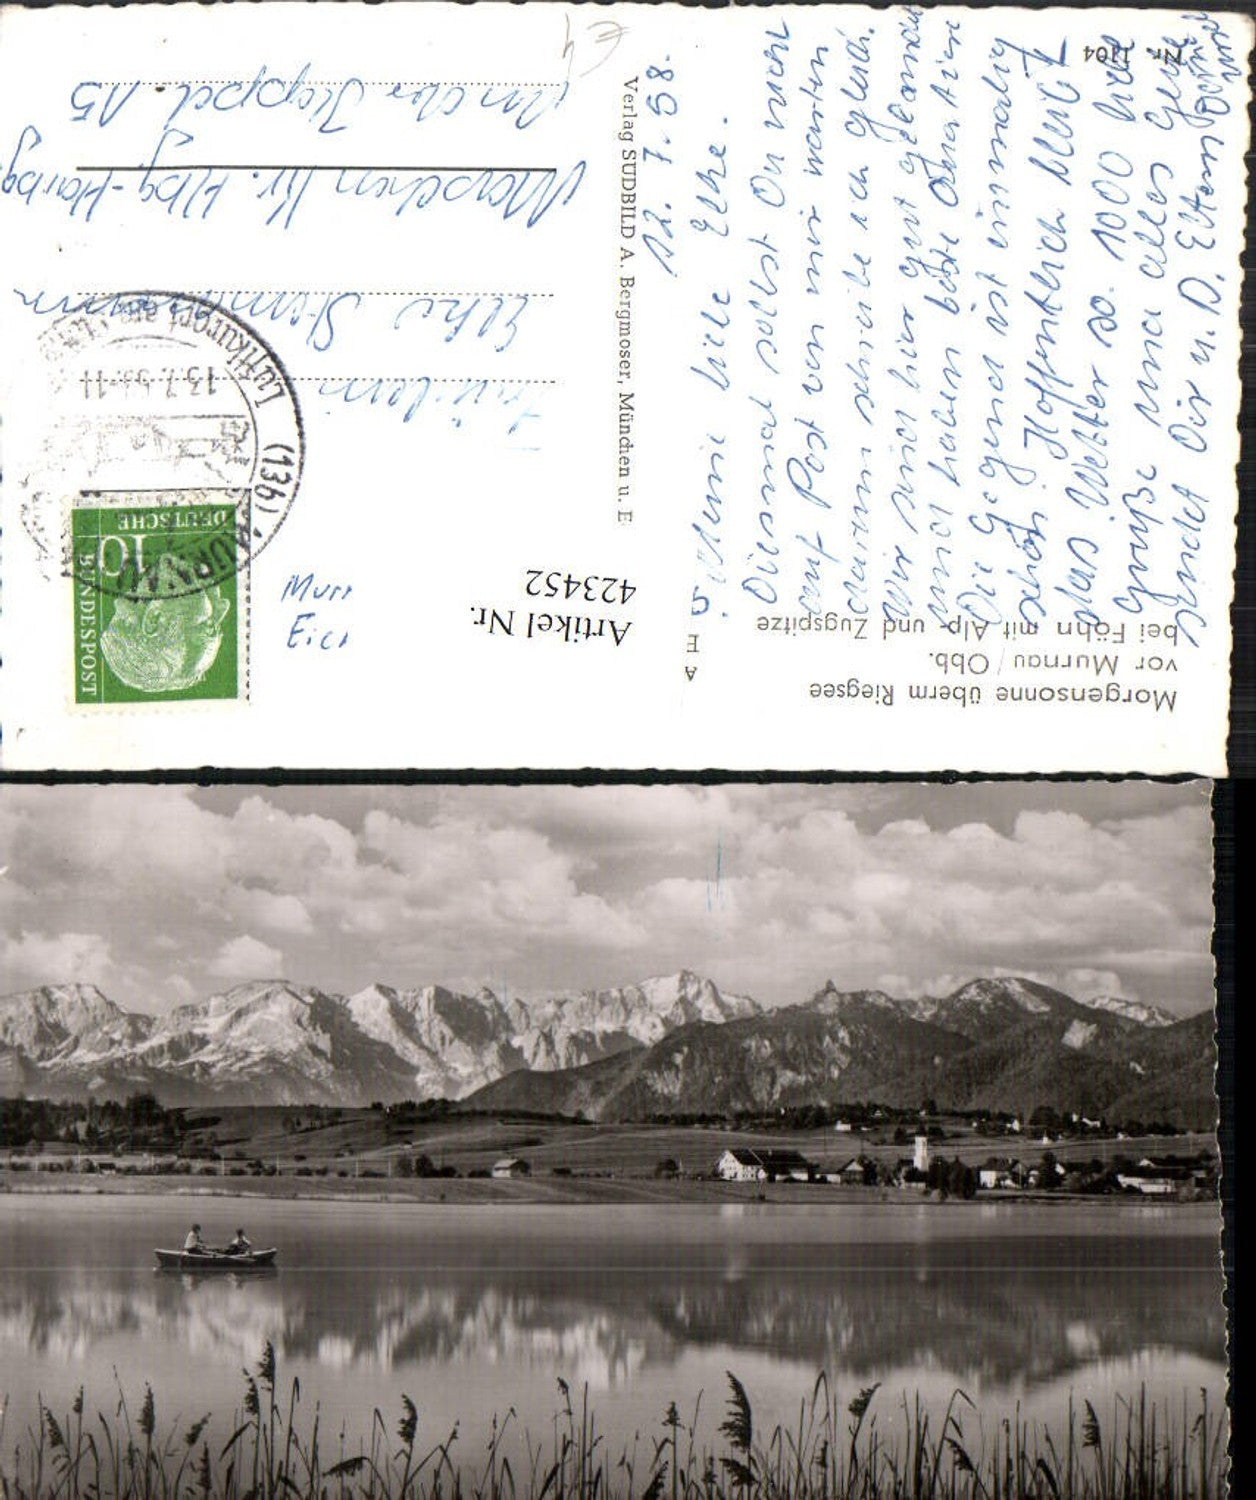 Morgensonne überm Riegsee
vor Murnau / Obb.
bei Föhn mit Alp- und Zugspitze
Nr. 1104
A E
Verlag SÜDBILD A. Bergmoser, München u. E
Artikel Nr.
423452
€ 4
12. 7. 58.
Meine liebe Elke.
Diesmal sollst Du nicht
auf Post von mir warten
darum schreibe ich gleich.
Wir sind hier gut gelandet
und haben beste Quartiere
Die Gegend ist einmalig
schön. Hoffentlich bleibt
das Wetter so. 1000 liebe
Grüße und alles Gute
sendet Dir u. D. Eltern
DEUTSCHE
BUNDESPOST
10
(13b) MURNAU
Luftkurort am
13.7.58.-11
Murn
Fräulein
Elke
Marschen Kr. Hbg-Harbg
An der Koppel 15